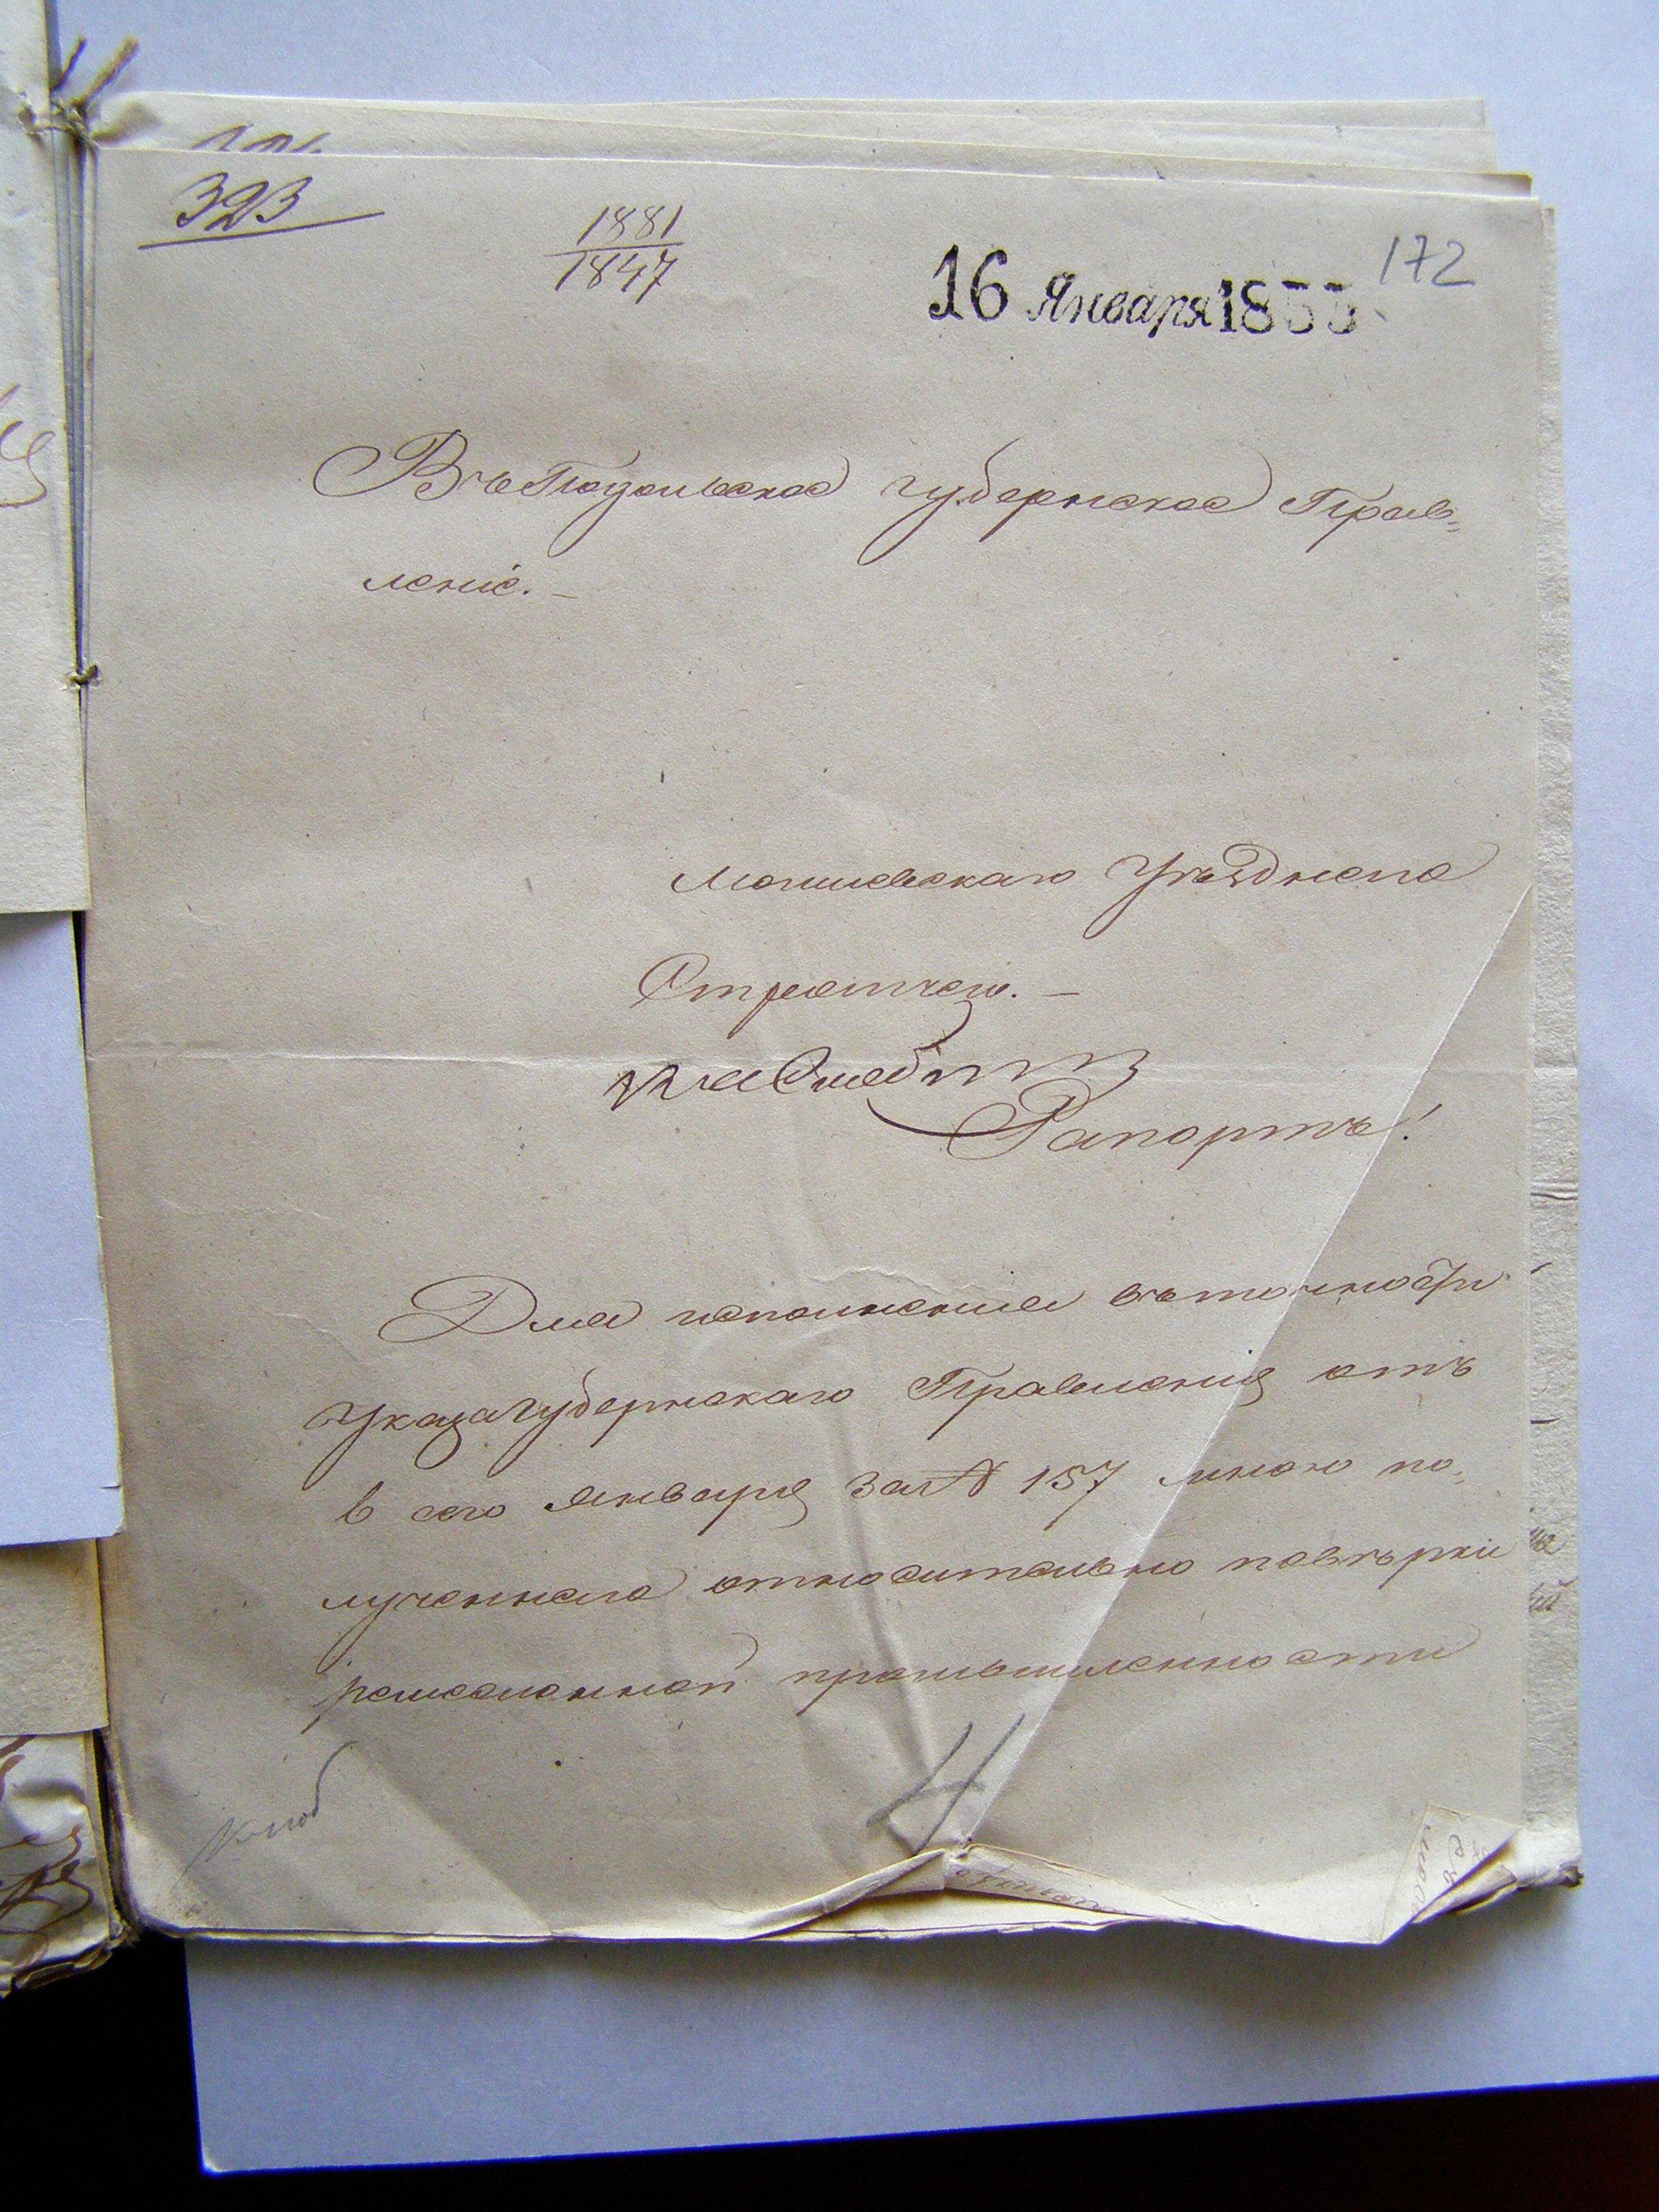 323
1881
1847
172
16 Января 1855
Въ Подольское Губернское Прав=
леніе. —
Могилевскаго Уѣзднаго
Стряпчаго. —
Рапортъ!
Для исполненія въ точности
Указа Губернскаго Правленія отъ
6 сего Января за N 157 мною по=
лученнаго относительно повѣрки
ремесленной промышленности